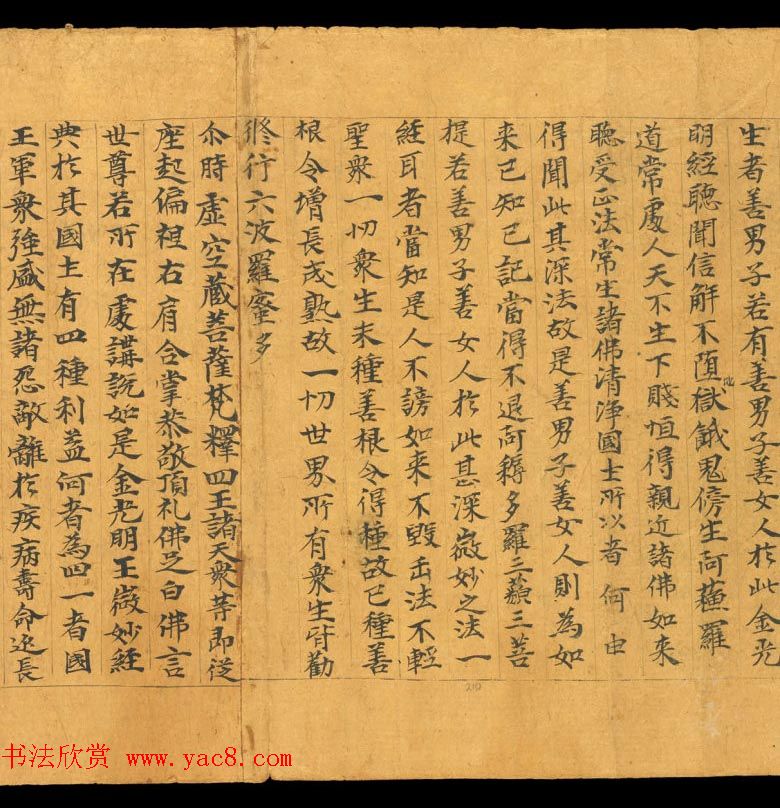 生者善男子若有善男子善女人於此金光
明經聽聞信解不墮地獄餓鬼傍生阿蘓羅
道常處人天不生下賤恒得親近諸佛如來
聽受正法常生諸佛清淨國土所以者何由
得聞此其深法故是善男子善女人則為如
來已知已記當得不退阿耨多羅三藐三菩
提若善男子善女人於此甚深微妙之法一
經耳者當知是人不謗如來不毀正法不輕
聖衆一切衆生未種善根令得種故已種善
根令增長成熟故一切世界所有衆生皆勸
修行六波羅蜜多
尒時虛空藏菩薩梵釋四王諸天衆等即從
座起偏袒右肩合掌恭敬頂礼佛足白佛言
世尊若所在處講說如是金光明王微妙經
典於其國土有四種利益何者為四一者國
王軍衆強盛無諸怨敵離於疾病壽命延長
210
书法欣赏 www.yac8.com